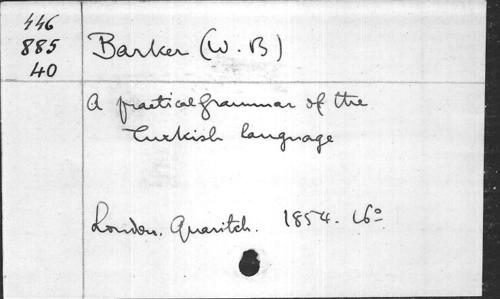 446
885
40
Barker (W. B)
A practical grammar of the
Turkish language
London, Quaritch. 1854. 16º